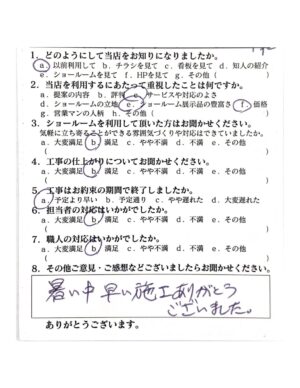 1．どのようにして当店をお知りになりましたか。
a．以前利用して　b．チラシを見て　c．看板を見て　d．知人の紹介
e．ショールームを見て　f．HPを見て　g．その他（　　　　　）
2．当店を利用するにあたって重視したことは何ですか。
a．提案の内容　b．評判　c．サービスや対応のよさ
d．ショールームの立地　e．ショールーム展示品の豊富さ　f．価格
g．営業マンの人柄　h．その他（　　　　　）
3．ショールームを利用して頂いた方はお聞かせください。
気軽に立ち寄ることができる雰囲気づくりや対応はできていましたか。
a．大変満足　b．満足　c．やや不満　d．不満　e．その他
（　　　　　）
4．工事の仕上がりについてお聞かせください。
a．大変満足　b．満足　c．やや不満　d．不満　e．その他
（　　　　　）
5．工事はお約束の期間で終了しましたか。
a．予定より早い　b．予定通り　c．やや遅れた　d．大変遅れた
6．担当者の対応はいかがでしたか。
a．大変満足　b．満足　c．やや不満　d．不満　e．その他
（　　　　　）
7．職人の対応はいかがでしたか。
a．大変満足　b．満足　c．やや不満　d．不満　e．その他
（　　　　　）
8．その他ご意見・ご感想などございましたらお聞かせください。
暑い中早い施工ありがとう
ございました。
ありがとうございます。